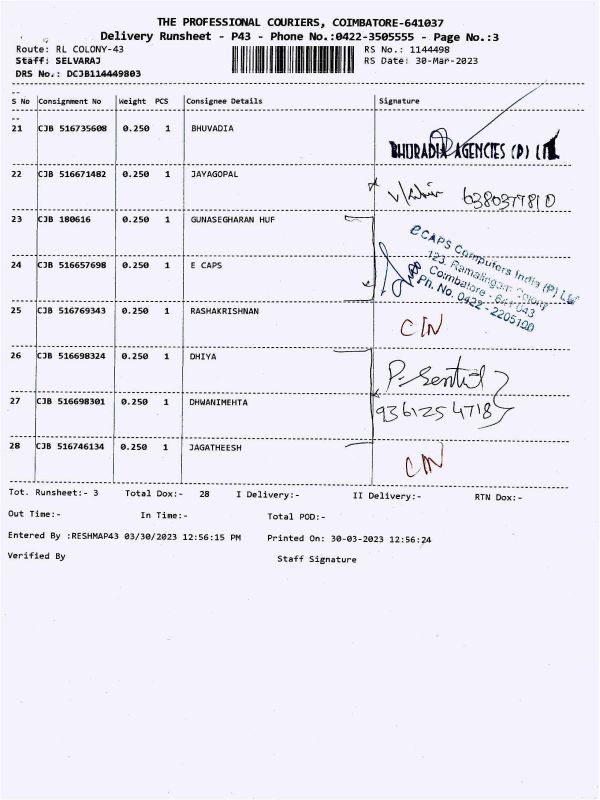 THE PROFESSIONAL COURIERS, COIMBATORE-641037
Delivery Runsheet - P43 - Phone No.:0422-3505555 - Page No.:3
Route: RL COLONY-43 RS No.: 1144498
Staff: SELVARAJ RS Date: 30-Mar-2023
DRS No.: DCJB114449803
S No Consignment No Weight PCS Consignee Details Signature
21 CJB 516735608 0.250 1 BHUVADIA
BHURADIA AGENCIES (P) LTD
22 CJB 516671482 0.250 1 JAYAGOPAL
6380377810
23 CJB 180616 0.250 1 GUNASEGHARAN HUF
eCAPS Computers India (P) Ltd
123, Ramalingam Colony
Coimbatore - 641 043
Ph. No. 0422 - 2205100
24 CJB 516657698 0.250 1 E CAPS
25 CJB 516769343 0.250 1 RASHAKRISHNAN
C/N
26 CJB 516698324 0.250 1 DHIYA
P. Senthil
27 CJB 516698301 0.250 1 DHWANIMEHTA
9361254718
28 CJB 516746134 0.250 1 JAGATHEESH
C/N
Tot. Runsheet:- 3 Total Dox:- 28 I Delivery:- II Delivery:- RTN Dox:-
Out Time:- In Time:- Total POD:-
Entered By :RESHMAP43 03/30/2023 12:56:15 PM Printed On: 30-03-2023 12:56:24
Verified By Staff Signature